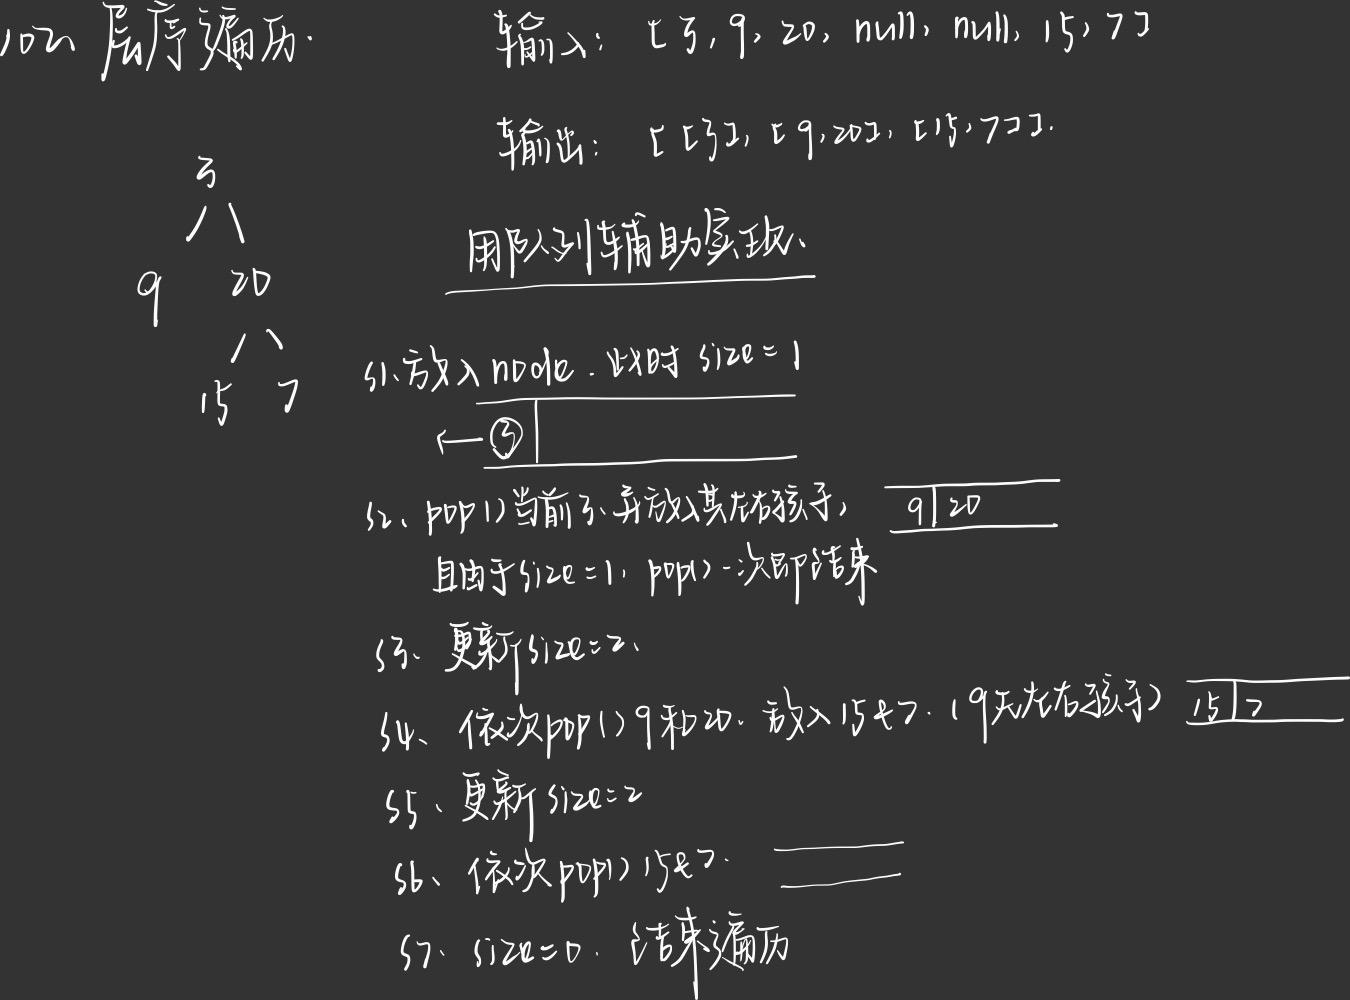 102、层序遍历.
输入: [3, 9, 20, null, null, 15, 7]
输出: [[3], [9,20], [15,7]].
3
9 20
15 7
用队列辅助实现、
S1、放入node. 此时 size=1
3
S2、pop()当前3、并放入其左右孩子,
9 20
且由于size=1, pop()一次即结束
S3、更新size=2、
S4、依次pop()9和20. 放入15&7. (9无左右孩子)
15 7
S5、更新size=2
S6、依次pop()15&7.
S7. size=0. 结束遍历